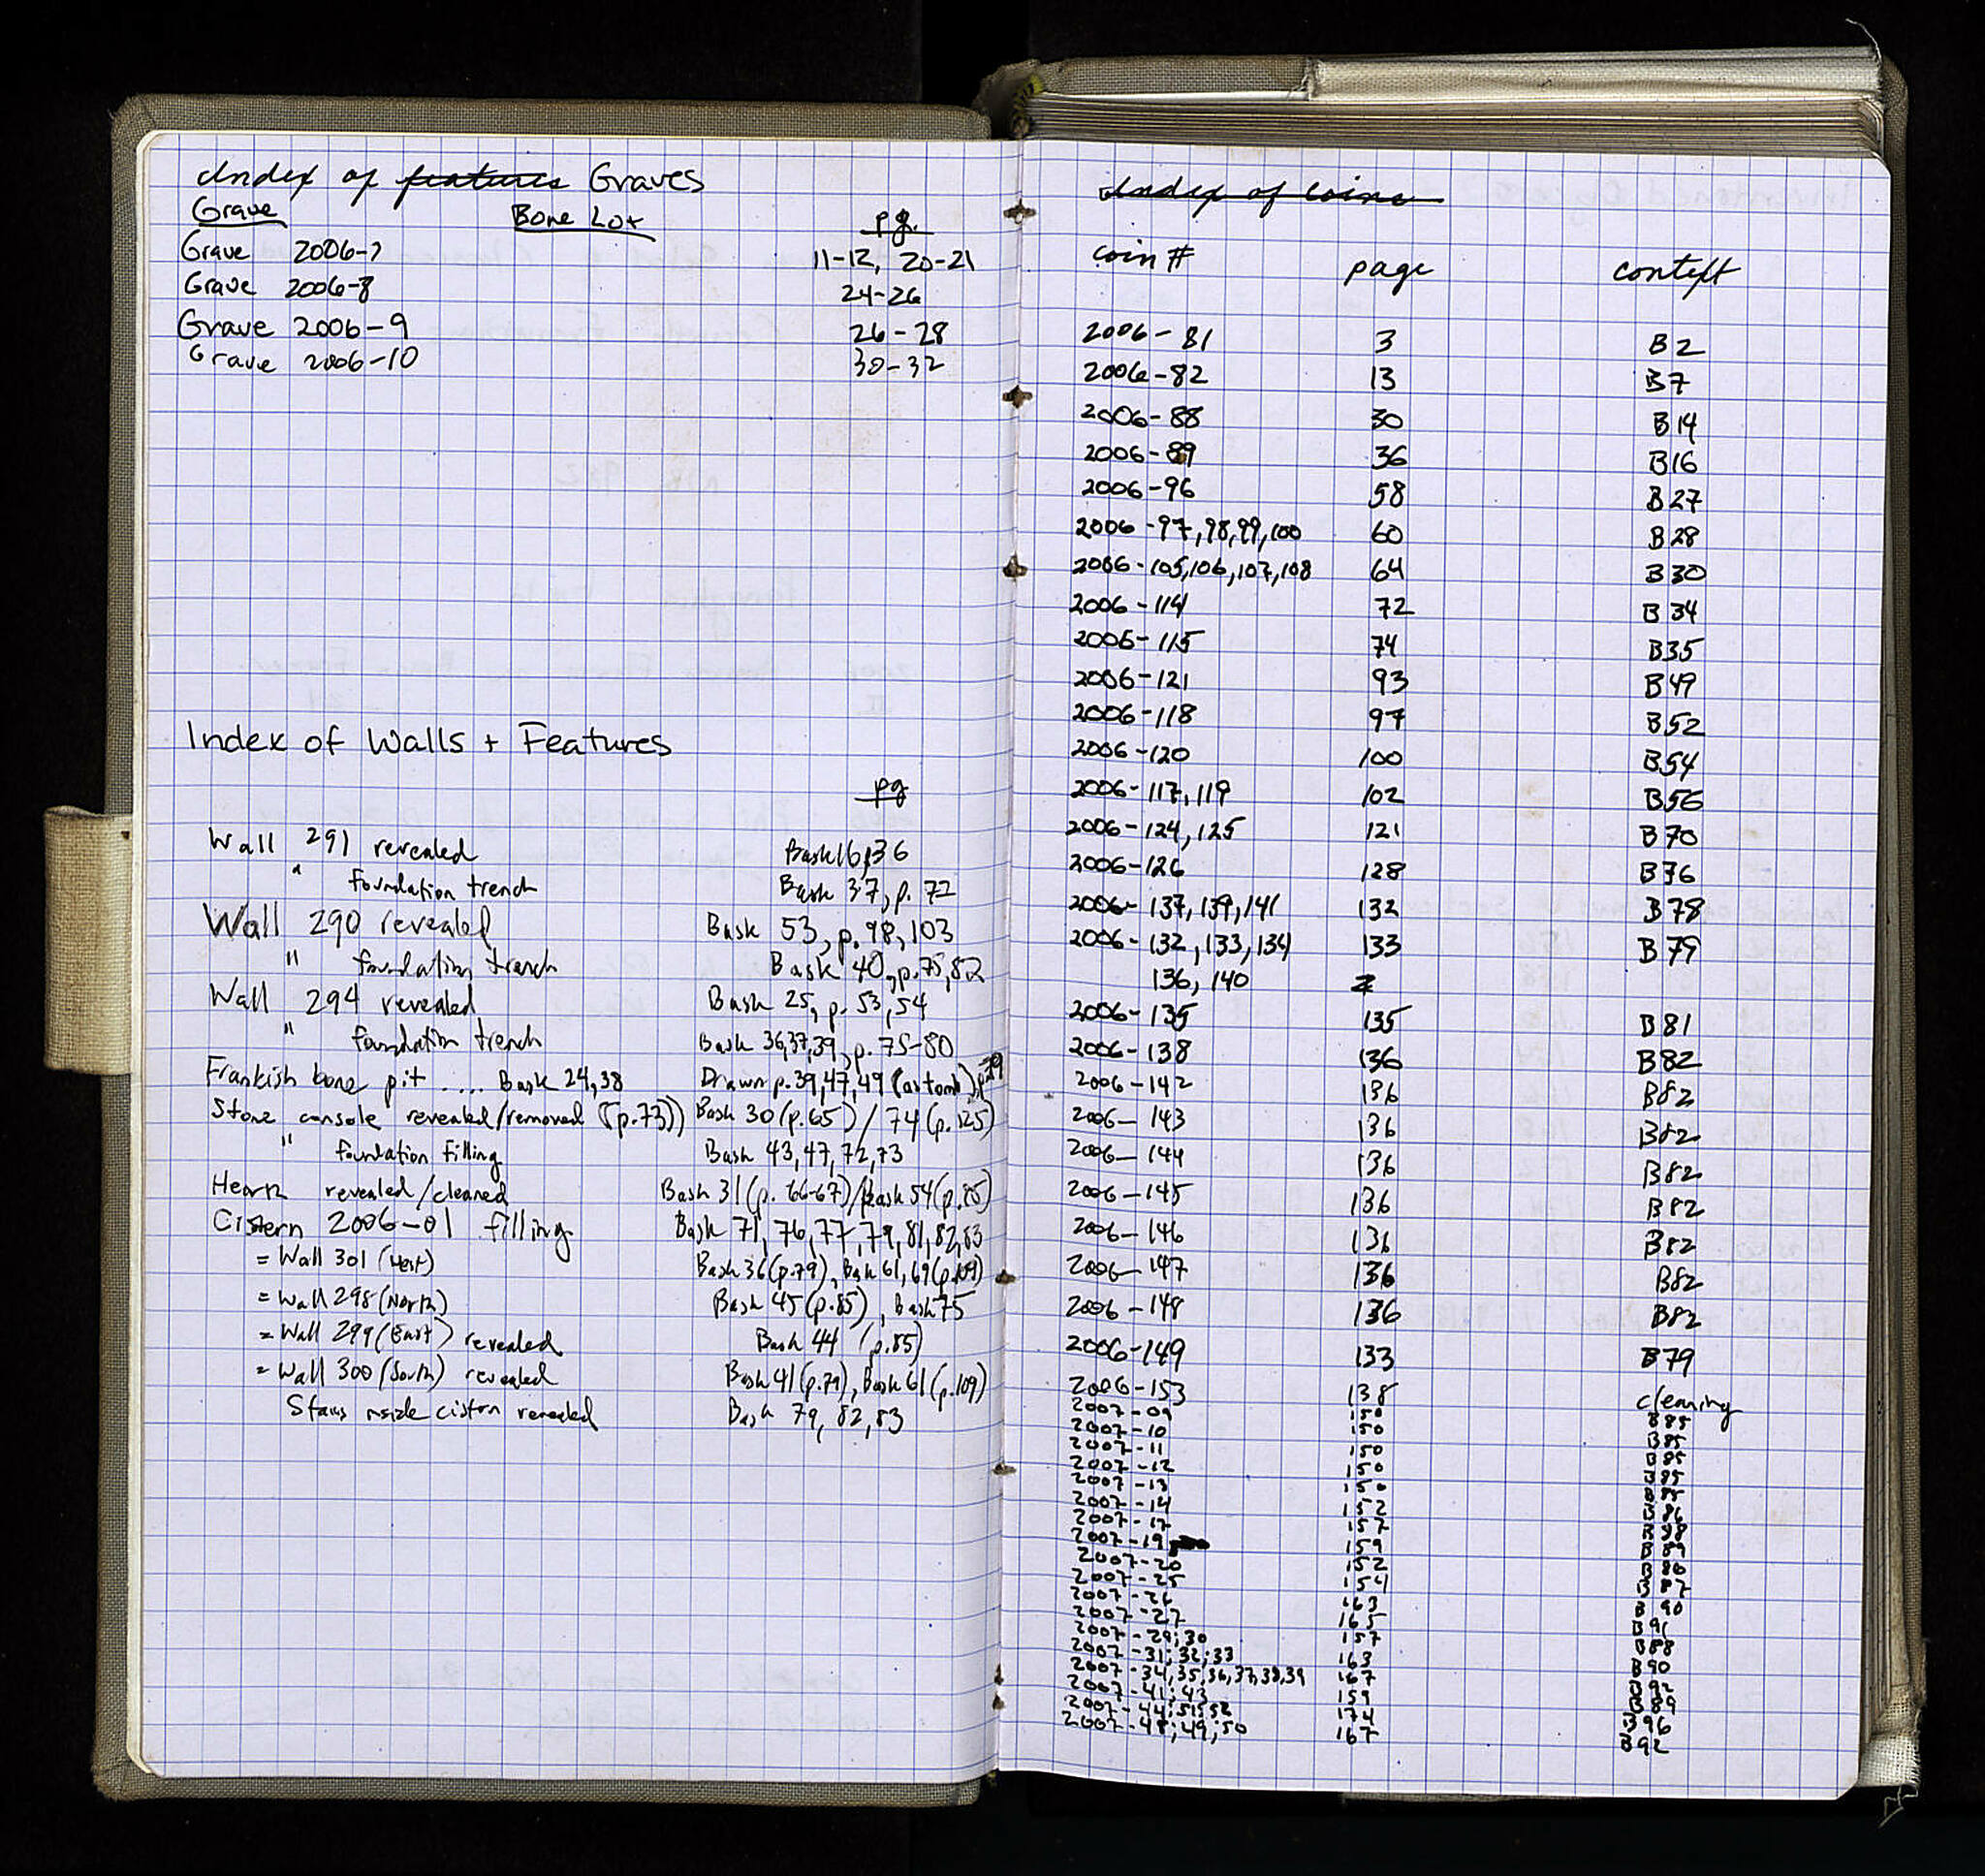 Index of features Graves
Grave Bone Lot pg.
Grave 2006-7 11-12, 20-21
Grave 2006-8 24-26
Grave 2006-9 26-28
Grave 2006-10 30-32
Index of Walls + Features
pg
Wall 291 revealed Bask 16 p36
" foundation trench Bask 37, p. 72
Wall 290 revealed Bask 53, p. 98, 103
" foundation trench Bask 40, p. 75, 82
Wall 294 revealed Bask 25, p. 53, 54
" foundation trench Bask 36,37,39, p. 75-80
Frankish bone pit .... Bask 24,38 Drawn p. 39,47,49 (as tomb),
Stone console revealed/removed (p.73)) Bask 30 (p.65) / 74 (p.125)
" foundation filling Bask 43, 47, 72, 73
Hearth revealed/cleaned Bask 31 (p. 66-67)/Bask 54 (p.85)
Cistern 2006-01 filling Bask 71, 76, 77, 79, 81, 82, 83
= Wall 301 (West) Bask 36 (p.79), Bask 61, 69 (p.109)
= Wall 298 (North) Bask 45 (p.85), Bask 75
= Wall 299 (East) revealed Bask 44 (p.85)
= Wall 300 (South) revealed Bask 41 (p.79), Bask 61 (p.109)
Stairs inside cistern revealed Bask 79, 82, 83
Index of coins
coin # page context
2006-81 3 B2
2006-82 13 B7
2006-88 30 B14
2006-89 36 B16
2006-96 58 B27
2006-97,98,99,100 60 B28
2006-105,106,107,108 64 B30
2006-114 72 B34
2006-115 74 B35
2006-121 93 B49
2006-118 97 B52
2006-120 100 B54
2006-117, 119 102 B56
2006-124, 125 121 B70
2006-126 128 B76
2006-137, 139, 141 132 B78
2006-132, 133, 134 133 B79
136, 140
2006-135 135 B81
2006-138 136 B82
2006-142 136 B82
2006-143 136 B82
2006-144 136 B82
2006-145 136 B82
2006-146 136 B82
2006-147 136 B82
2006-148 136 B82
2006-149 133 B79
2006-153 138 cleaning
2007-09 150 B85
2007-10 150 B85
2007-11 150 B85
2007-12 150 B85
2007-13 150 B85
2007-14 152 B86
2007-17 157 B88
2007-19 159 B89
2007-20 152 B86
2007-25 154 B87
2007-26 163 B90
2007-27 165 B91
2007-29;30 157 B88
2007-31;32;33 163 B90
2007-34,35,36,37,38,39 167 B92
2007-41;43 159 B89
2007-44;51;52 174 B96
2007-48;49;50 167 B92